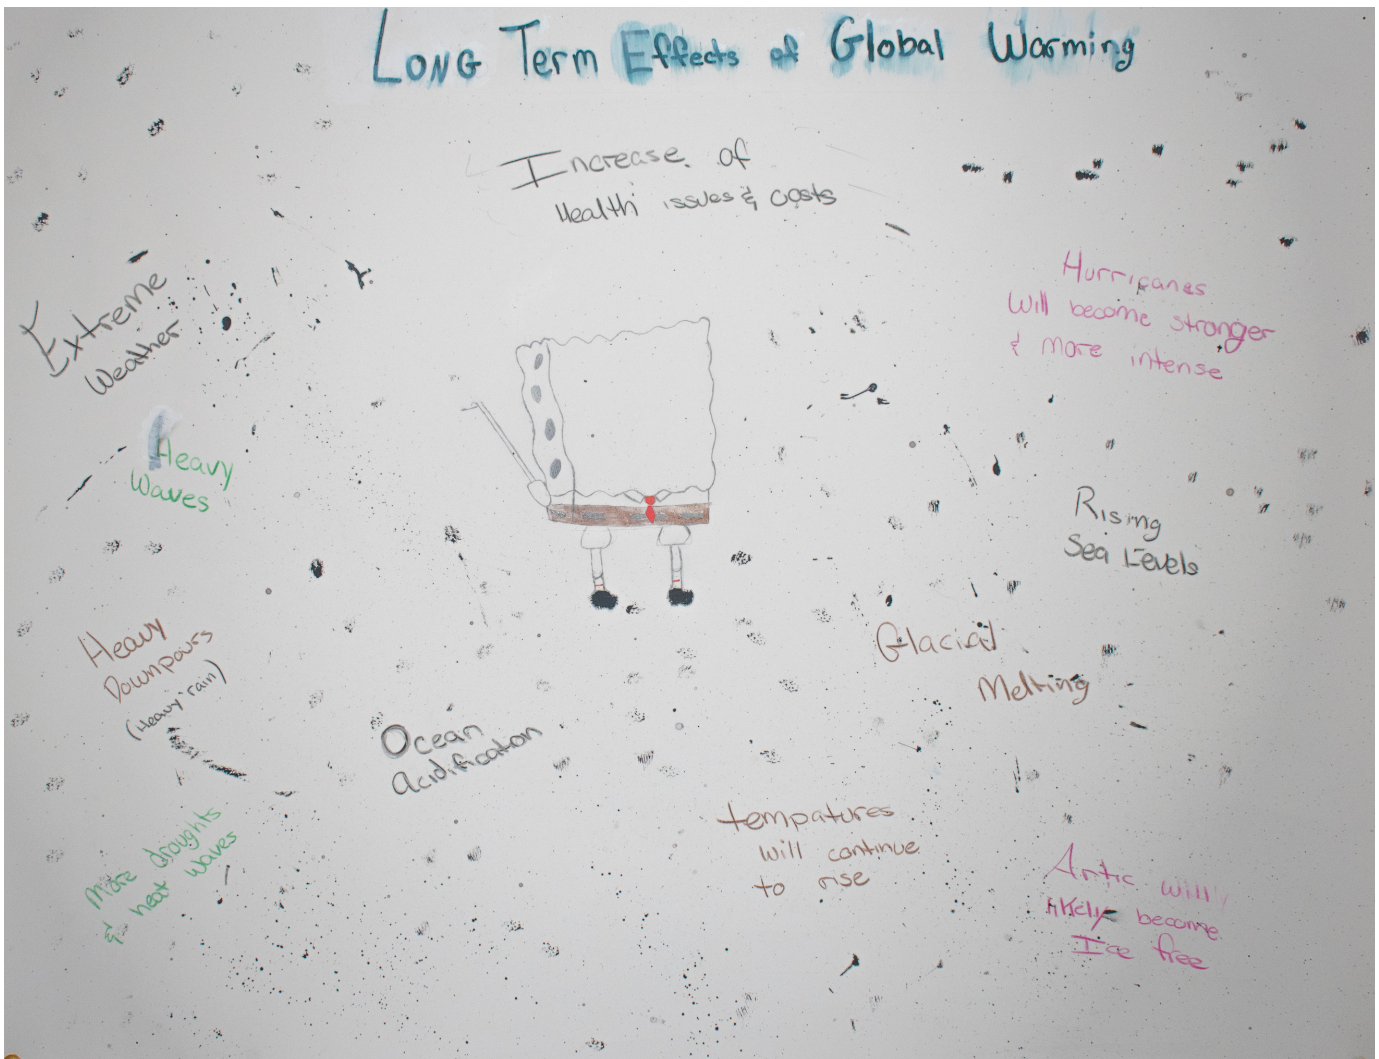 Long Term Effects of Global Warming
Increase of
Health issues & costs
Extreme
Weather
Hurricanes
Will become stronger
& more intense
Heavy
Waves
Rising
Sea Levels
Heavy
Downpours
(Heavy rain)
Glacial
Melting
Ocean
Acidification
More droughts
& heat waves
tempatures
will continue
to rise
Artic will
likely become
Ice free